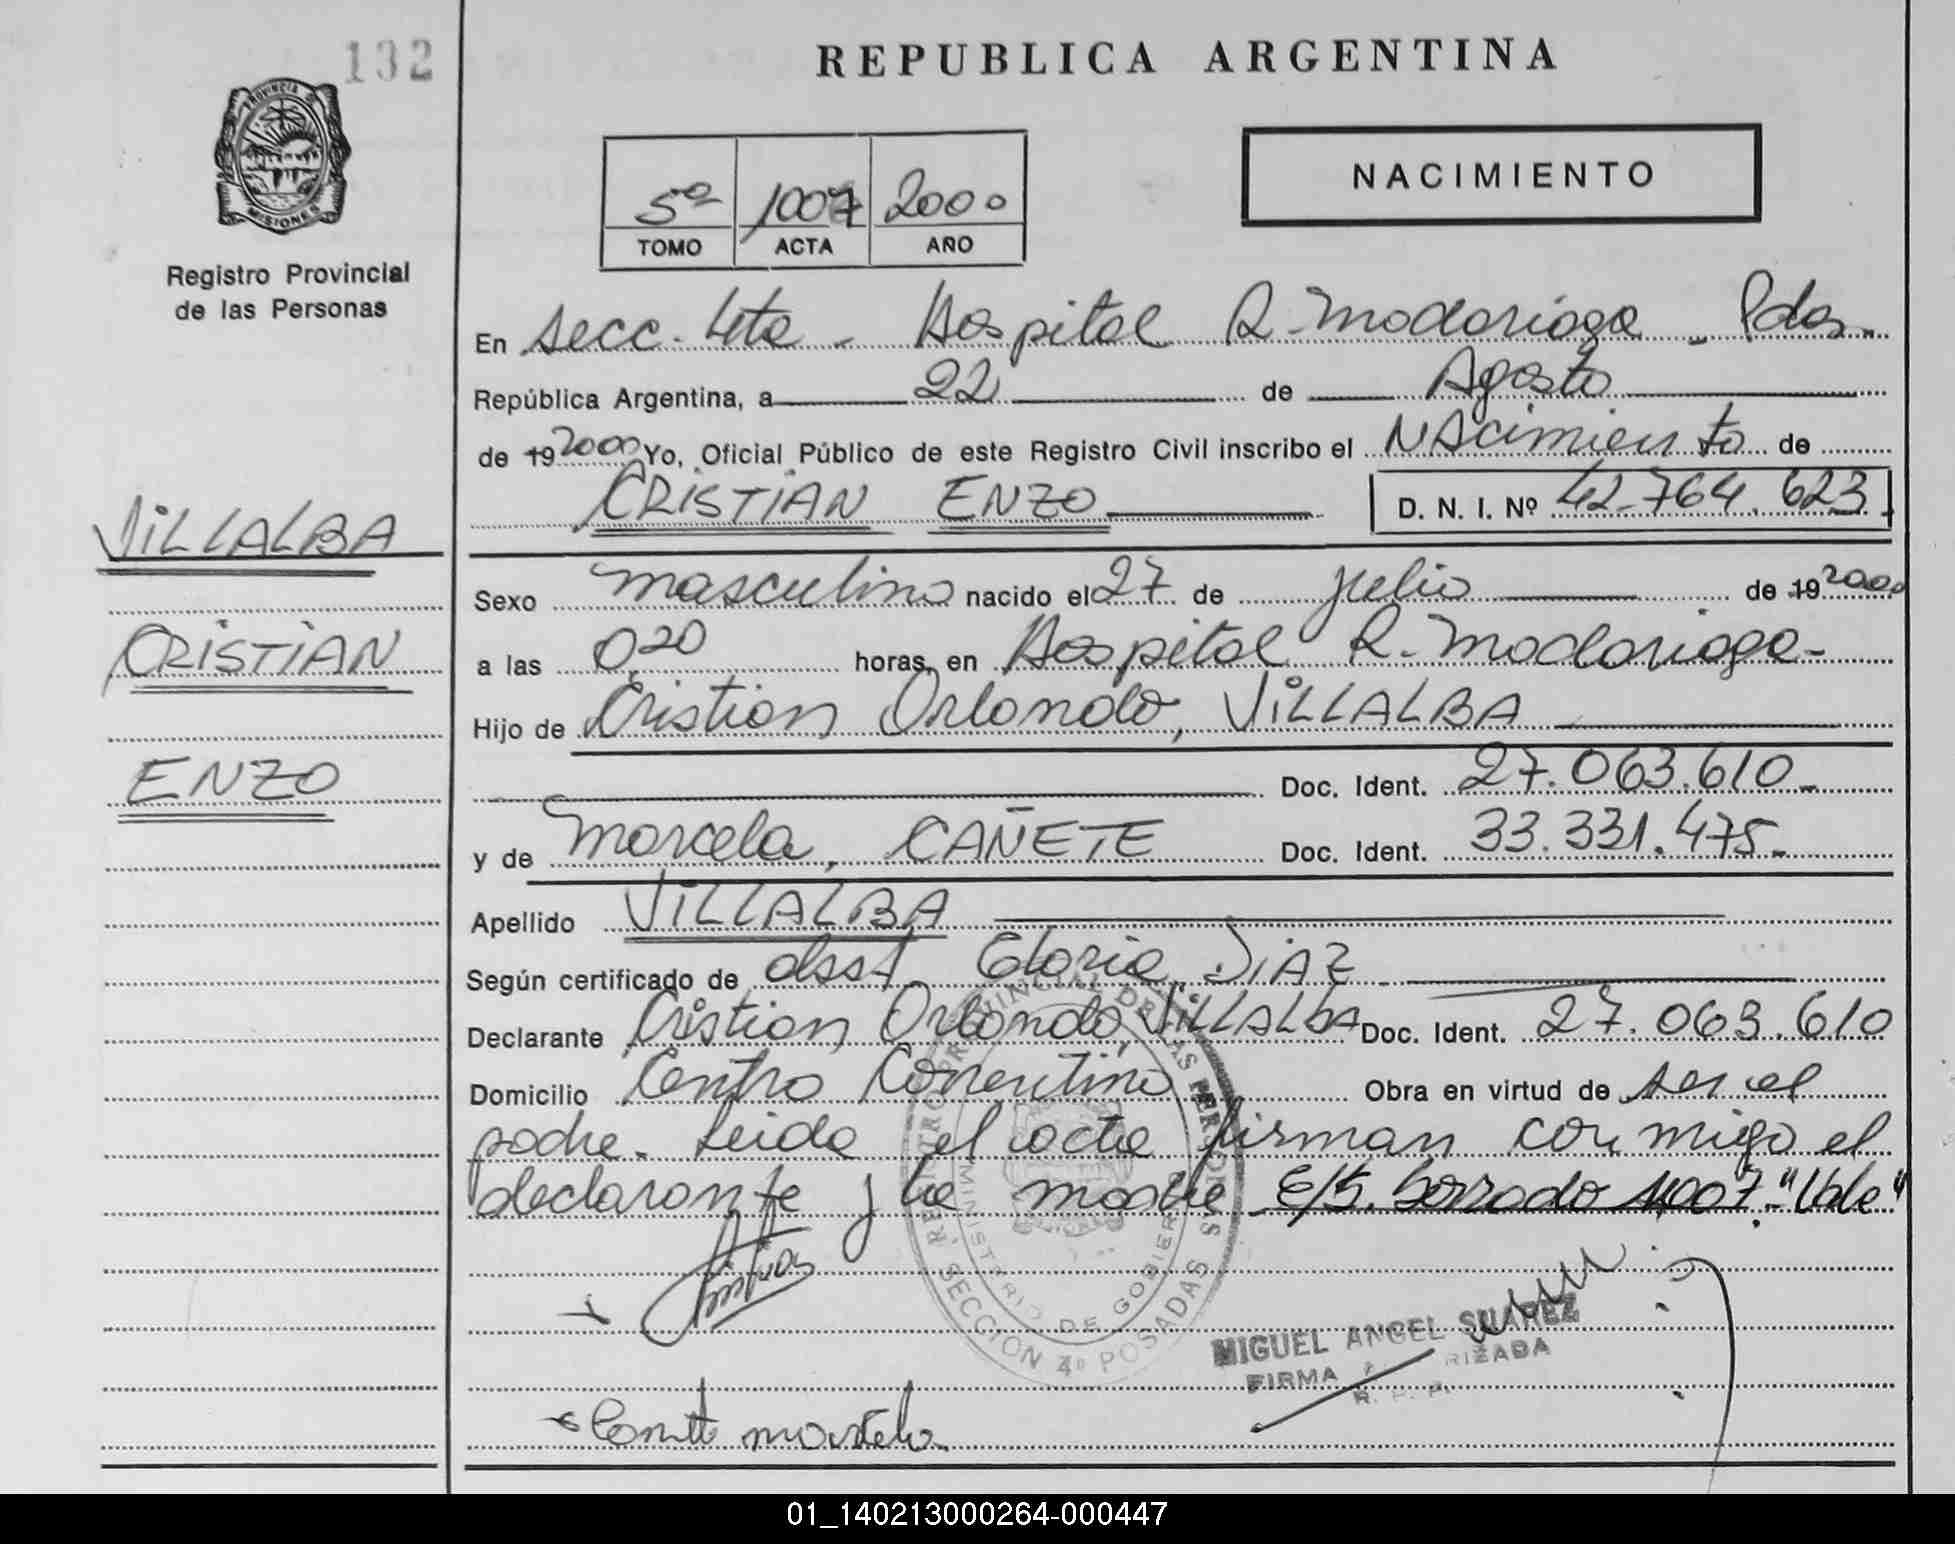 132
REPUBLICA ARGENTINA
PROVINCIA DE
MISIONES
Registro Provincial
de las Personas
5º 1007 2000
TOMO ACTA AÑO
NACIMIENTO
En Secc. 4ta - Hospital R. Madariaga - Pdas.
República Argentina, a 22 de Agosto
de 19 2000 Yo, Oficial Público de este Registro Civil inscribo el NAcimiento de
CRISTIAN ENZO D. N. I. Nº 42.764.623
VILLALBA
CRISTIAN
ENZO
Sexo masculino nacido el 27 de julio de 19 2000
a las 0,20 horas, en Hospital R. Madariaga-
Hijo de Cristian Orlando, VILLALBA
Doc. Ident. 27.063.610-
y de Marcela, CAÑETE Doc. Ident. 33.331.475-
Apellido VILLALBA
Según certificado de obst. Gloria DIAZ
Declarante Cristian Orlando, VILLALBA Doc. Ident. 27.063.610
Domicilio Centro Correntino Obra en virtud de ser el
padre. Leida el acta firman conmigo el
declarante y la madre E/S. borrado 1007. "Vale"
REGISTRO PROVINCIAL DE LAS PERSONAS
MINISTERIO DE GOBIERNO
SECCION 4º POSADAS
MIGUEL ANGEL SUAREZ
FIRMA AUTORIZADA
R. P. P.
01_140213000264-000447